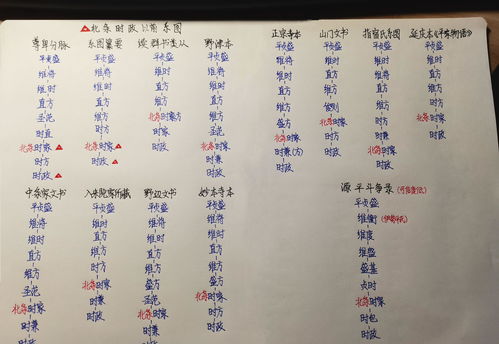 北条时政以前系图
尊卑分脉
平贞盛
维将
维时
直方
圣范
时直
北条时家
时方
时政
系图纂要
平贞盛
维将
维时
直方
维方
时方
北条时家
时政
续群书类从
平贞盛
维时
直方
维方
北条时家方
时家
时政
野津本
平贞盛
维将
维时
直方
维方
圣范
北条时家
时兼
时政
正宗寺本
平贞盛
维将
维时
直方
维方
盛方
北条时家
时兼(方)
时政
山门文书
平贞盛
维时
直方
维方
北条时家
时方
时政
指宿氏系图
平贞盛
维将
维时
直方
维方
时家
北条时兼
时政
延庆本《平家物语》
平贞盛
维时
直方
维方
北条时家
时政
中条家文书
平贞盛
维将
维时
直方
维方
圣范
北条时家
时兼
时政
入来院家所藏
平贞盛
维时
直方
维方
时方
北条时家
时兼
时政
野辺文书
平贞盛
维将
维时
直方
维方
盛方
圣范
北条时家
时兼
时政
妙本寺本
平贞盛
维将
维时
直方
维方
盛方
北条时家
时方
时政
源平斗争录(可信度低)
平贞盛
维衡(伊势平氏)
维度
维盛
盛基
贞时
北条时家
时包
时政